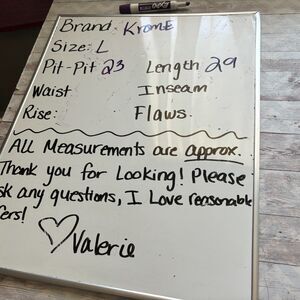 Brand: KromE
Size: L
Pit-Pit 23 Length 29
Waist Inseam
Rise: Flaws.
ALL Measurements are approx.
Thank you for Looking! Please
sk any questions, I Love reasonable
fers!
Valerie